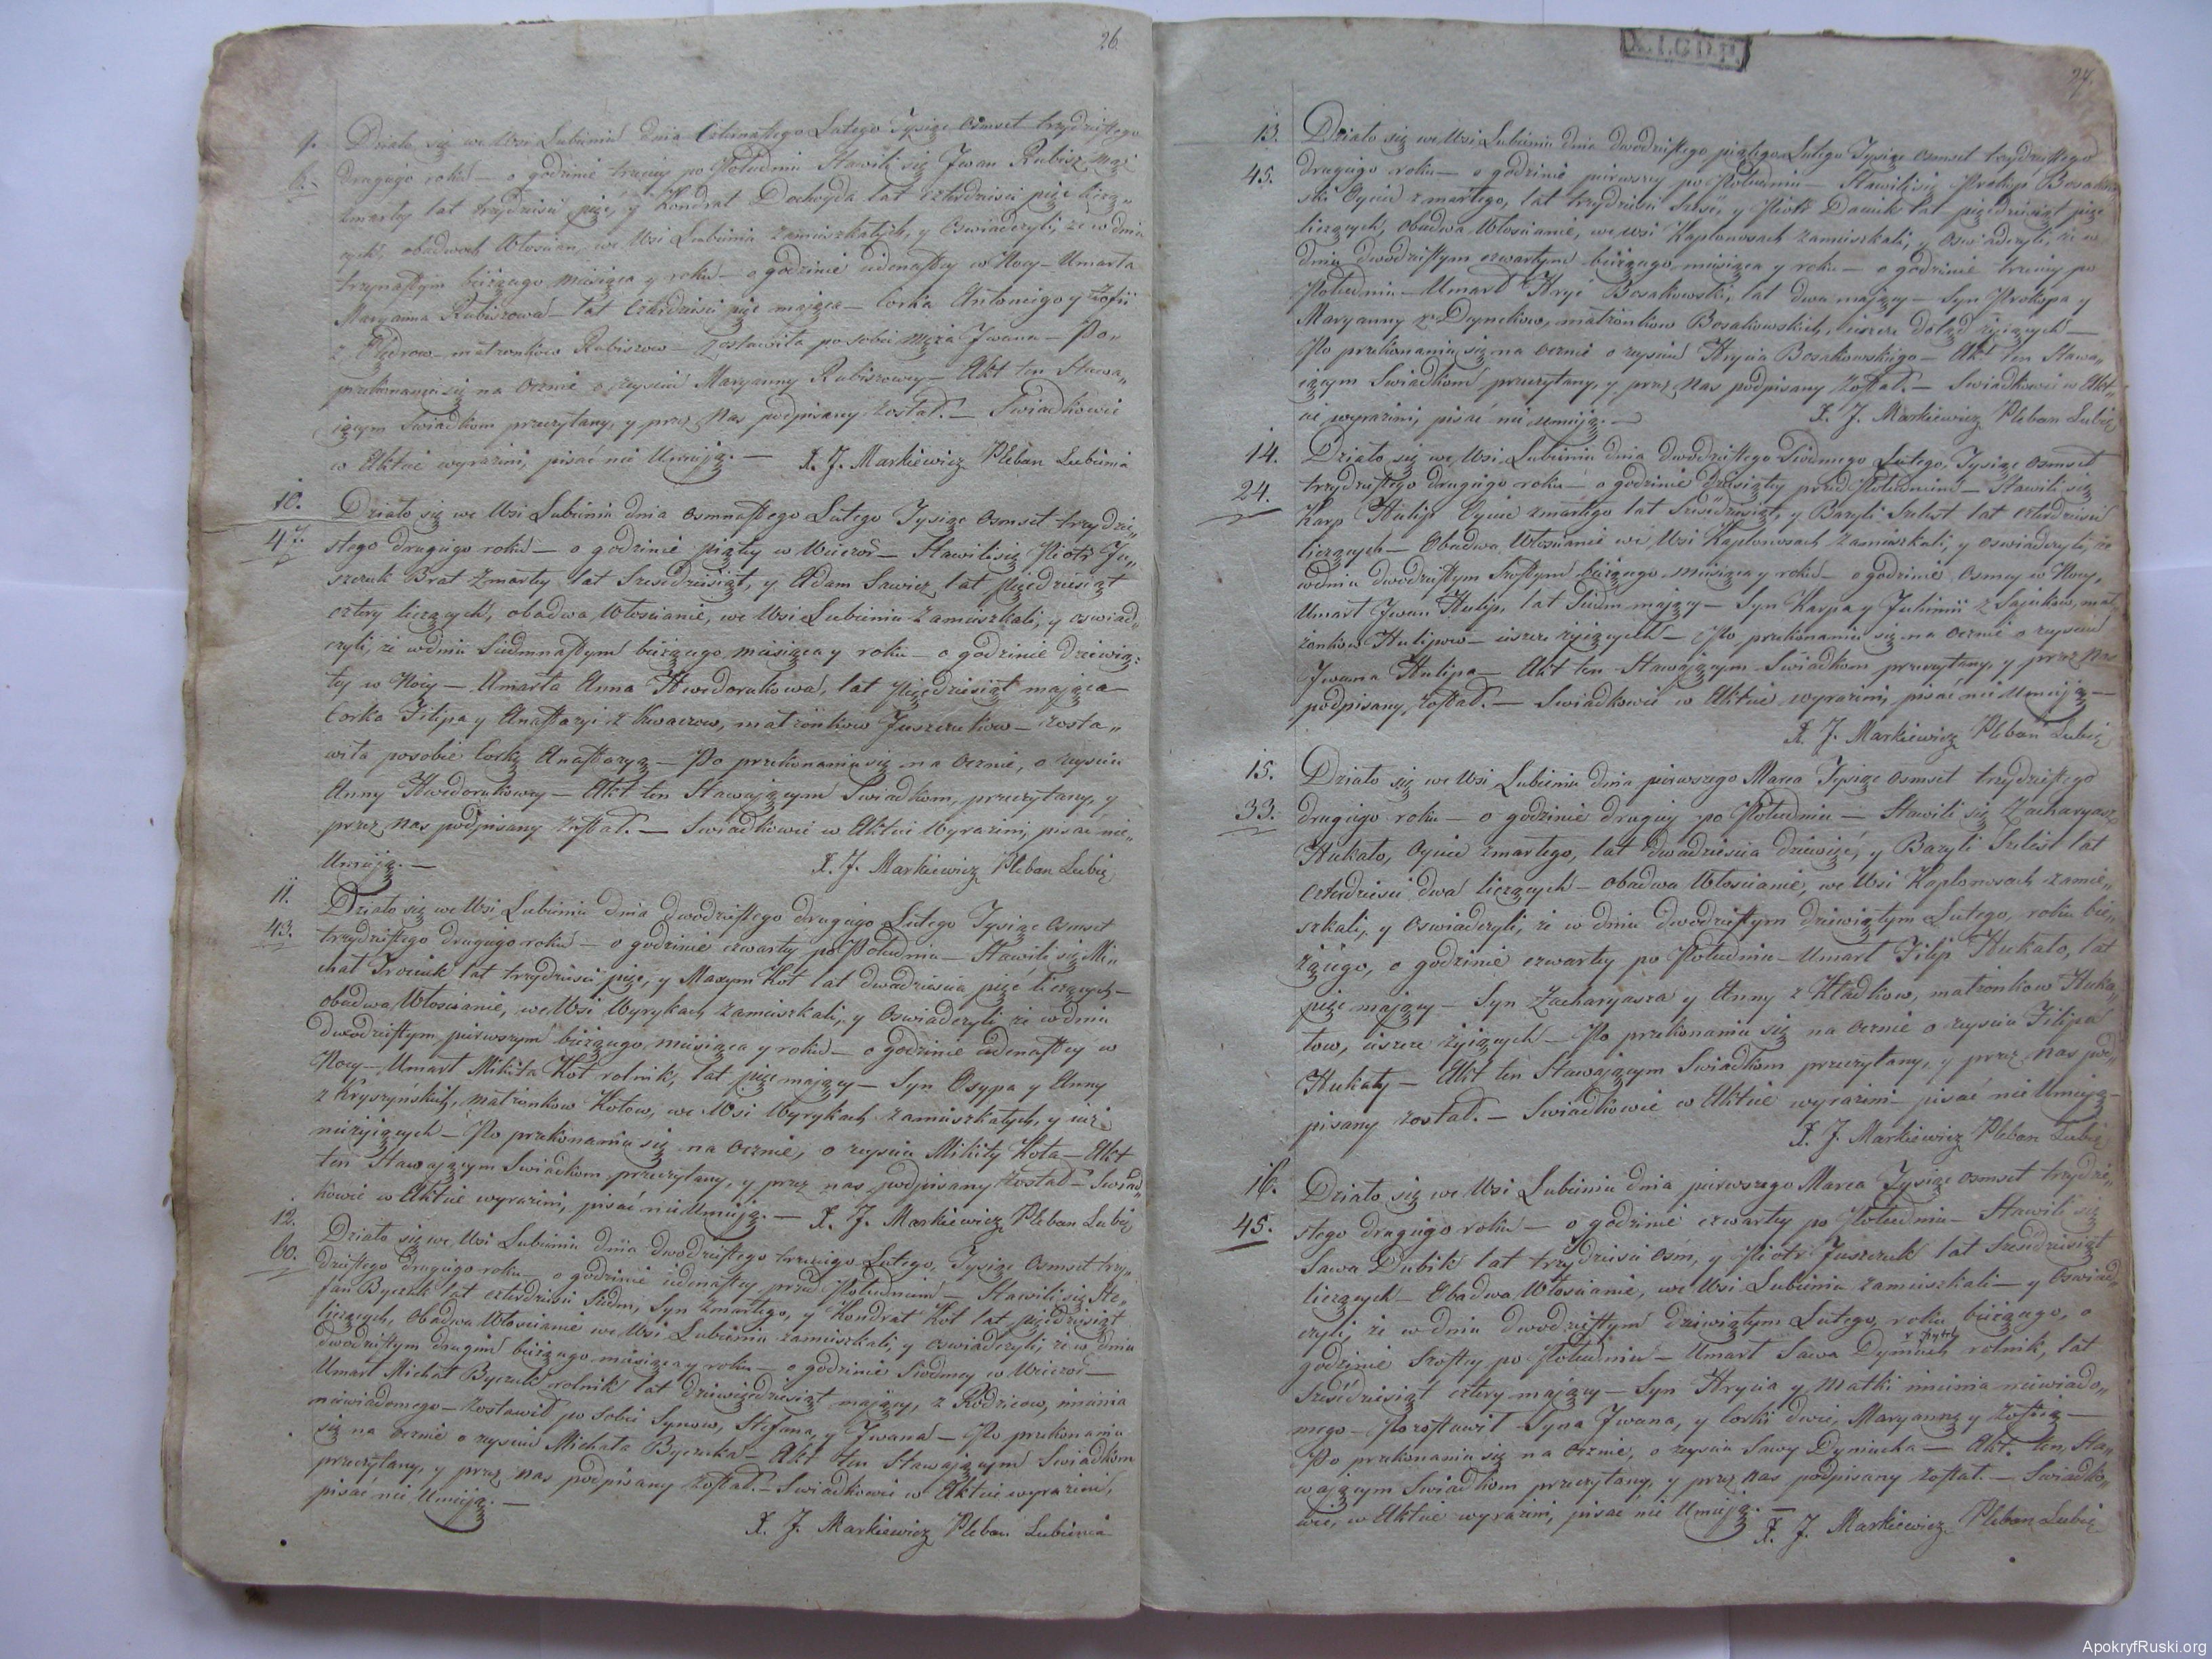 26.
9.
6.
Działo się we Wsi Lubieniu dnia Czternastego Lutego Tysiąc osmset trzydziestego
drugiego roku — o godzinie trzeciey po Południu Stawili się Jwan Rubisz mąż
zmarłey lat trzydzieści pięć, y Kondrat Dochoyda lat czterdzieści pięć liczą„
cych, obadwa Włoscian, we Wsi Lubieniu zamieszkałych, y Oswiadczyli, że w dniu
trzynastym bieżącego miesiąca y roku — o godzinie iedenastey w Nocy — Umarła
Maryanna Rubiszowa — lat Czterdzieści pięć maiąca — Corka Antoniego y Zofii
z małżonkow Rubiszow — zostawiła po sobie męża Jwana — Po„
przekonaniu się na ocznie o zeysciu Maryanny Rubiszowey — Akt ten Stawa„
iącym Swiadkom przeczytany, y przez Nas podpisany został. — Swiadkowie
w Akcie wyrażeni, pisać nie Umieją. — X. J. Markiewicz Pleban Lubienia
10.
47.
Działo się we Wsi Lubieniu dnia osmnastego Lutego Tysiąc Osmset trzydzie„
stego drugiego roku — o godzinie piątey w Wieczor — Stawili się Piotr Ju„
szczuk Brat Zmarłey lat Szescdziesiąt, y Adam Sawicz lat pięcdziesiąt
cztery liczących, obadwa Włoscianie, we Wsi Lubieniu zamieszkali, y oswiad„
czyli, iż w dniu Siedmnastym bieżącego miesiąca y roku — o godzinie dziewią„
tey w Nocy — Umarła Anna Hwedorukowa, lat pięcdziesiąt maiąca —
Corka Filipa y Anastazyi z Kwaczow, małżonkow Juszczukow — zosta„
wiła po sobie Corkę Anastazyą — Po przekonaniu się na ocznie, o zeysciu
Anny Hwedorukowey — Akt ten Stawaiącym Swiadkom, przeczytany, y
przez Nas podpisany został. — Swiadkowie w Akcie Wyrażeni, pisać nie„
Umieją. — X. J. Markiewicz Pleban Lubię
11.
43.
Działo się we Wsi Lubieniu dnia dwodziestego drugiego Lutego Tysiąc Osmset
trzydziestego drugiego roku — o godzinie czwartey po Południu — Stawili się Mi„
chał Trociuk lat trzydzieści pięć, y Maxym Kot lat dwadziescia pięć liczących —
obadwa Włoscianie, we Wsi Wyrykach zamieszkali, y oswiadczyli że w dniu
dwodziestym pierwszym bieżącego miesiąca y roku — o godzinie iedenastey w
Nocy — Umarł Mikita Kot rolnik, lat pięć maiący — Syn Osypa y Anny
z Kryszyńskich, małżonkow Kotow, we Wsi Wyrykach zamieszkałych, y iuż
nieżyiących — Po przekonaniu się na ocznie, o zeysciu Mikity Kota — Akt
ten Stawaiącym Swiadkom przeczytany, y przez nas podpisany został — Swiad„
kowie w Akcie wyrażeni, pisać nie Umieją. — X. J. Markiewicz Pleban Lubię
12.
60.
Działo się we Wsi Lubieniu dnia dwodziestego trzeciego Lutego, Tysiąc Osmset trzy„
dziestego drugiego roku — o godzinie iedenastey przed Południem — Stawili się Ste„
fan Byczuk lat czterdzieści Siedm, Syn Zmarłego, y Kondrat Kot lat pięcdziesiąt
liczących, Obadwa Włoscianie we Wsi Lubieniu zamieszkali, y oswiadczyli, że w dniu
dwodziestym drugim bieżącego miesiąca y roku — o godzinie Siodmey w Wieczor —
Umarł Michał Byczuk rolnik lat dziewięcdziesiąt maiący, z Rodzicow, imienia
niewiadomego — zostawił po Sobie Synow, Stefana, y Jwana — Po przekonaniu
się na ocznie o zeysciu Michała Byczuka — Akt ten Stawaiącym Swiadkom
przeczytany, y przez nas podpisany został. — Swiadkowie w Akcie wyrażeni,
pisać nie Umieją. —
X. J. Markiewicz Pleban Lubienia
27.
13.
45.
Działo się we Wsi Lubieniu dnia dwodziestego piątego Lutego Tysiąc osmset trzydziestego
drugiego roku — o godzinie pierwszey po Południu — Stawili się Prokop Bosakow
ski Oyciec zmarłego, lat trzydzieści Szesć, y Piotr Daciuk lat pięcdziesiąt pięć
liczących, Obadwa Włoscianie, we Wsi Kaplonosach zamieszkali, y Oswiadczyli, że w
dniu dwodziestym czwartym bieżącego miesiąca y roku — o godzinie trzeciey po
Południu — Umarł Hryć Bosakowski, lat dwa maiący — Syn Prokopa y
Maryanny z Deynekow, małżonkow Bosakowskich, ieszcze dotąd żyiących —
Po przekonaniu się na ocznie o zeysciu Hrycia Bosakowskiego — Akt ten Stawa„
iącym Swiadkom przeczytany, y przez Nas podpisany został. — Swiadkowie w Akt
cie wyrażeni, pisać nie umieją. — X. J. Markiewicz Pleban Lubię
14.
24.
Działo się we Wsi Lubieniu dnia dwodziestego Siodmego Lutego, Tysiąc Osmset
trzydziestego drugiego roku — o godzinie dziesiątey przed Południem — Stawili się
Karp Hulip Oyciec zmarłego lat Szescdziesiąt, y Bazyli Szelest lat czterdzieści
liczących — Obadwa Włoscianie we Wsi Kaplonosach zamieszkali, y oswiadczyli, że
w dniu dwodziestym Szostym bieżącego miesiąca y roku — o godzinie Osmey w Nocy,
Umarł Jwan Hulip, lat Siedm maiący — Syn Karpa y Julianii z Sajukow, mał
żonkow Hulipow — ieszcze żyiących — Po przekonaniu się na ocznie o zeysciu
Jwana Hulipa — Akt ten Stawaiącym Swiadkom przeczytany, y przez Nas
podpisany, został. — Swiadkowie w Akcie wyrażeni, pisać nie Umieją —
X. J. Markiewicz Pleban Lubię
15.
33.
Działo się we Wsi Lubieniu dnia pierwszego Marca Tysiąc osmset trzydziestego
drugiego roku — o godzinie drugiey po Południu — Stawili się Zacharyasz
Hukało, Oyciec zmarłego, lat dwadziescia dziewięć, y Bazyli Szelest lat
czterdzieści dwa liczących — obadwa Włoscianie, we Wsi Kaplonosach zamie„
szkali, y Oswiadczyli, że w dniu dwodziestym dziewiątym Lutego, roku bie„
żącego, o godzinie czwartey po Południu — Umarł Filip Hukało, lat
pięć maiący — Syn Zacharyasza y Anny z Hładkow, małżonkow Huka„
łow, ieszcze żyiących — Po przekonaniu się na ocznie o zeysciu Filipa
Hukały — Akt ten Stawaiącym Swiadkom przeczytany, y przez Nas pod„
pisany został. — Swiadkowie w Akcie wyrażeni — pisać nie Umieją —
X. J. Markiewicz Pleban Lubię
16.
45.
Działo się we Wsi Lubieniu dnia pierwszego Marca Tysiąc osmset trzydzie„
stego drugiego roku — o godzinie czwartey po Południu — Stawili się
Sawa Dubik lat trzydzieści osm, y Piotr Juszczuk lat Szescdziesiąt
liczących — Obadwa Włoscianie, we Wsi Lubieniu zamieszkali — y Oswiad„
czyli, że w dniu dwodziestym dziewiątym Lutego, roku bieżącego, o
godzinie Szostey po Południu — Umarł Sawa Dymiuch rolnik, lat
Szescdziesiąt cztery maiący — Syn Hrycia y Matki imienia niewiado„
mego — Pozostawił Syna Jwana, y Corki dwie, Maryannę y Zofię —
Po przekonaniu się na ocznie, o zeysciu Sawy Dymiucha — Akt ten Sta„
waiącym Swiadkom przeczytany, y przez Nas podpisany został. — Swiadko„
wie, w Akcie wyrażeni, pisać nie Umieją. —
X. J. Markiewicz Pleban Lubię
ApokryfRuski.org